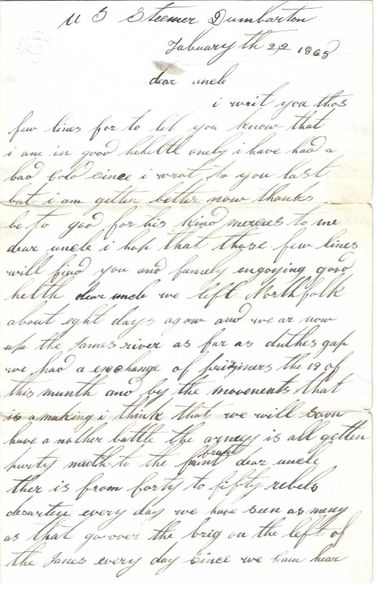 U S Steemer Dumbarton
Fabuary th 22 1865
dear uncle
i writ you thos
few lines for to let you know that
i am in good hehelth onely i have had a
bad cold since i wrot to you last
but i am getten better now thanks
be to god for his kind merces to me
dear uncle i hope that those few lines
will find you and famely engoying good
helth dear uncle we left Northfolk
about eght days agow and we ar now
up the James river as far as duthes gap
we had a exchange of prisziners the 19 of
this munth and by the movenents that
is a making i think that we will soon
have a nother battle the armey is all getten
purty mutch to the frunt dear uncle
ther is from forty to fifty rebels
desarten every day we have seen as meny
as that go over the brig on the left of
the Janes every day since we cam hear